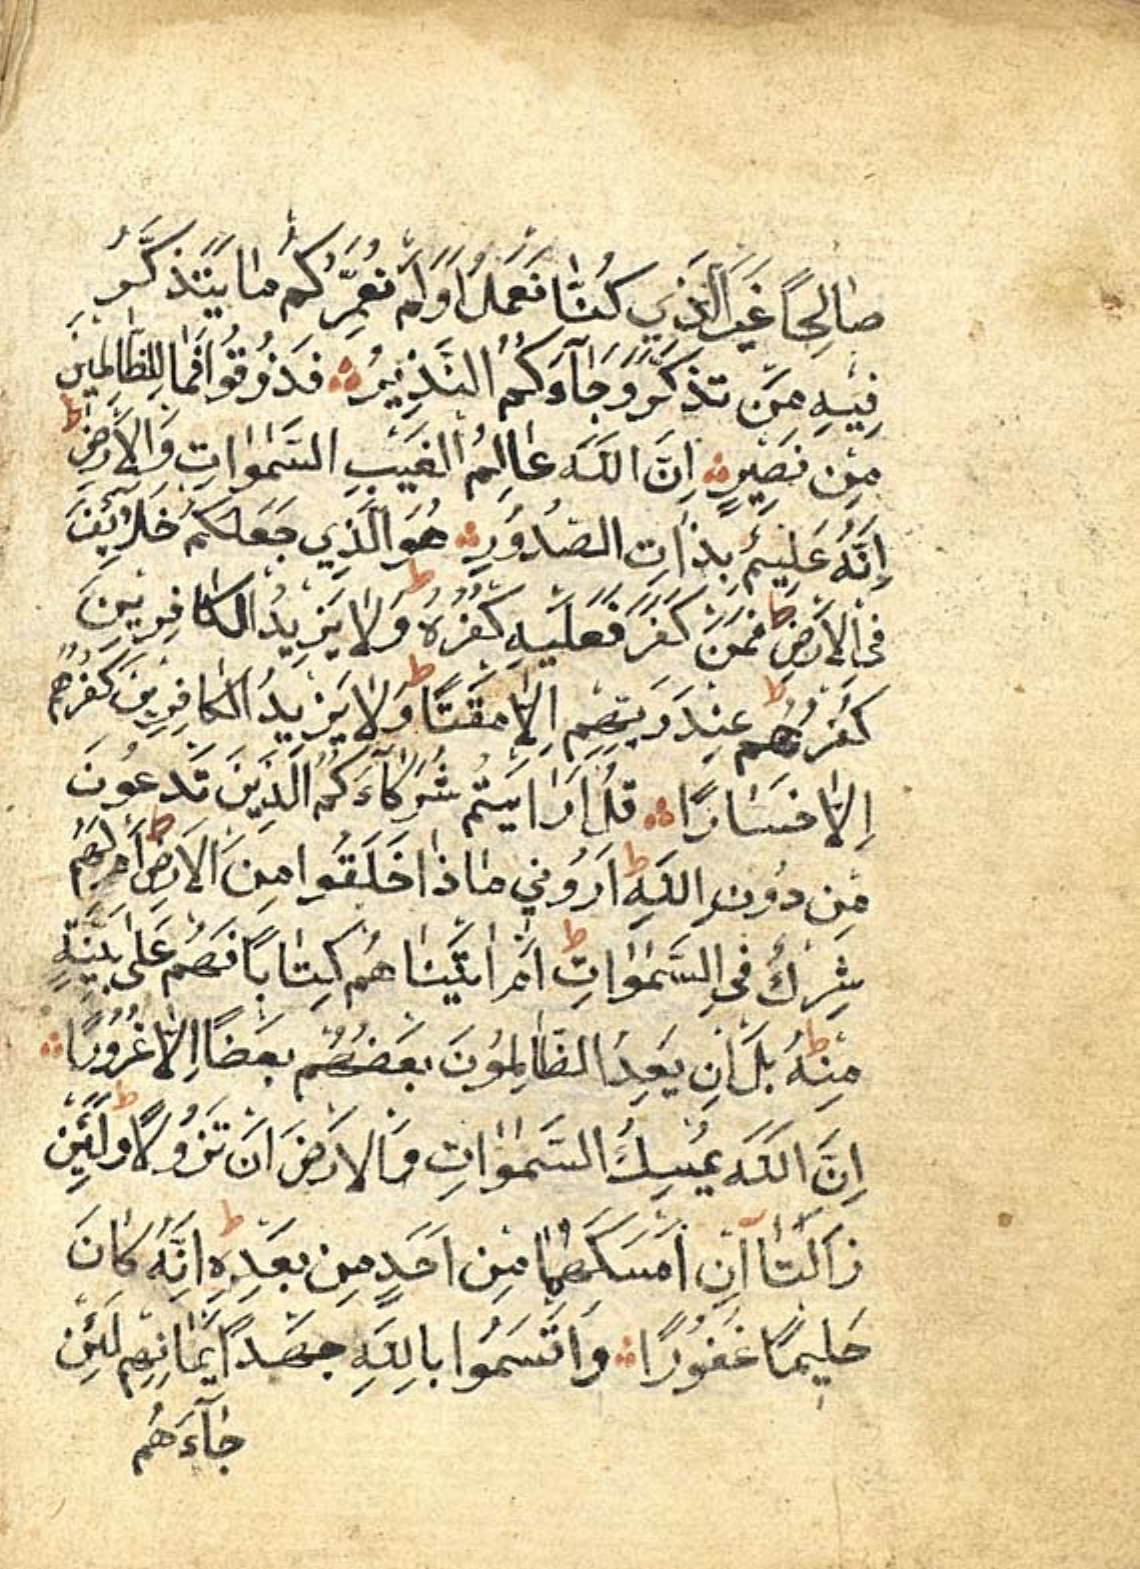 صَالِحًا غَيْرَ الَّذِي كُنَّا نَعْمَلُ اَوَلَمْ نُعَمِّرْكُمْ مَا يَتَذَكَّرُ
فِيهِ مَنْ تَذَكَّرَ وَجَاءَكُمُ النَّذِيرُ ۞ فَذُوقُوا فَمَا لِلظَّالِمِينَ
مِنْ نَصِيرٍ ۞ اِنَّ اللّٰهَ عَالِمُ الْغَيْبِ السَّمٰوَاتِ وَالْاَرْضِ ط
اِنَّهُ عَلِيمٌ بِذَاتِ الصُّدُورِ ۞ هُوَ الَّذِي جَعَلَكُمْ خَلَائِفَ
فِي الْاَرْضِ ط فَمَنْ كَفَرَ فَعَلَيْهِ كُفْرُهُ ط وَلَا يَزِيدُ الْكَافِرِينَ
كُفْرُهُمْ ط عِنْدَ رَبِّهِمْ اِلَّا مَقْتًا ط وَلَا يَزِيدُ الْكَافِرِينَ كُفْرُهُمْ
اِلَّا خَسَارًا ۞ قُلْ اَرَاَيْتُمْ شُرَكَآءَكُمُ الَّذِينَ تَدْعُونَ
مِنْ دُونِ اللّٰهِ ط اَرُونِي مَاذَا خَلَقُوا مِنَ الْاَرْضِ ط اَمْ لَهُمْ
شِرْكٌ فِي السَّمٰوَاتِ ط اَمْ اٰتَيْنَاهُمْ كِتَابًا فَهُمْ عَلٰى بَيِّنَةٍ
مِنْهُ ط بَلْ اِنْ يَعِدُ الظَّالِمُونَ بَعْضُهُمْ بَعْضًا اِلَّا غُرُورًا ۞
اِنَّ اللّٰهَ يُمْسِكُ السَّمٰوَاتِ وَالْاَرْضَ اَنْ تَزُولَا ط وَلَئِنْ
زَالَتَا اِنْ اَمْسَكَهُمَا مِنْ اَحَدٍ مِنْ بَعْدِهِ ط اِنَّهُ كَانَ
حَلِيمًا غَفُورًا ۞ وَاَقْسَمُوا بِاللّٰهِ جَهْدَ اَيْمَانِهِمْ لَئِنْ
جَآءَهُمْ